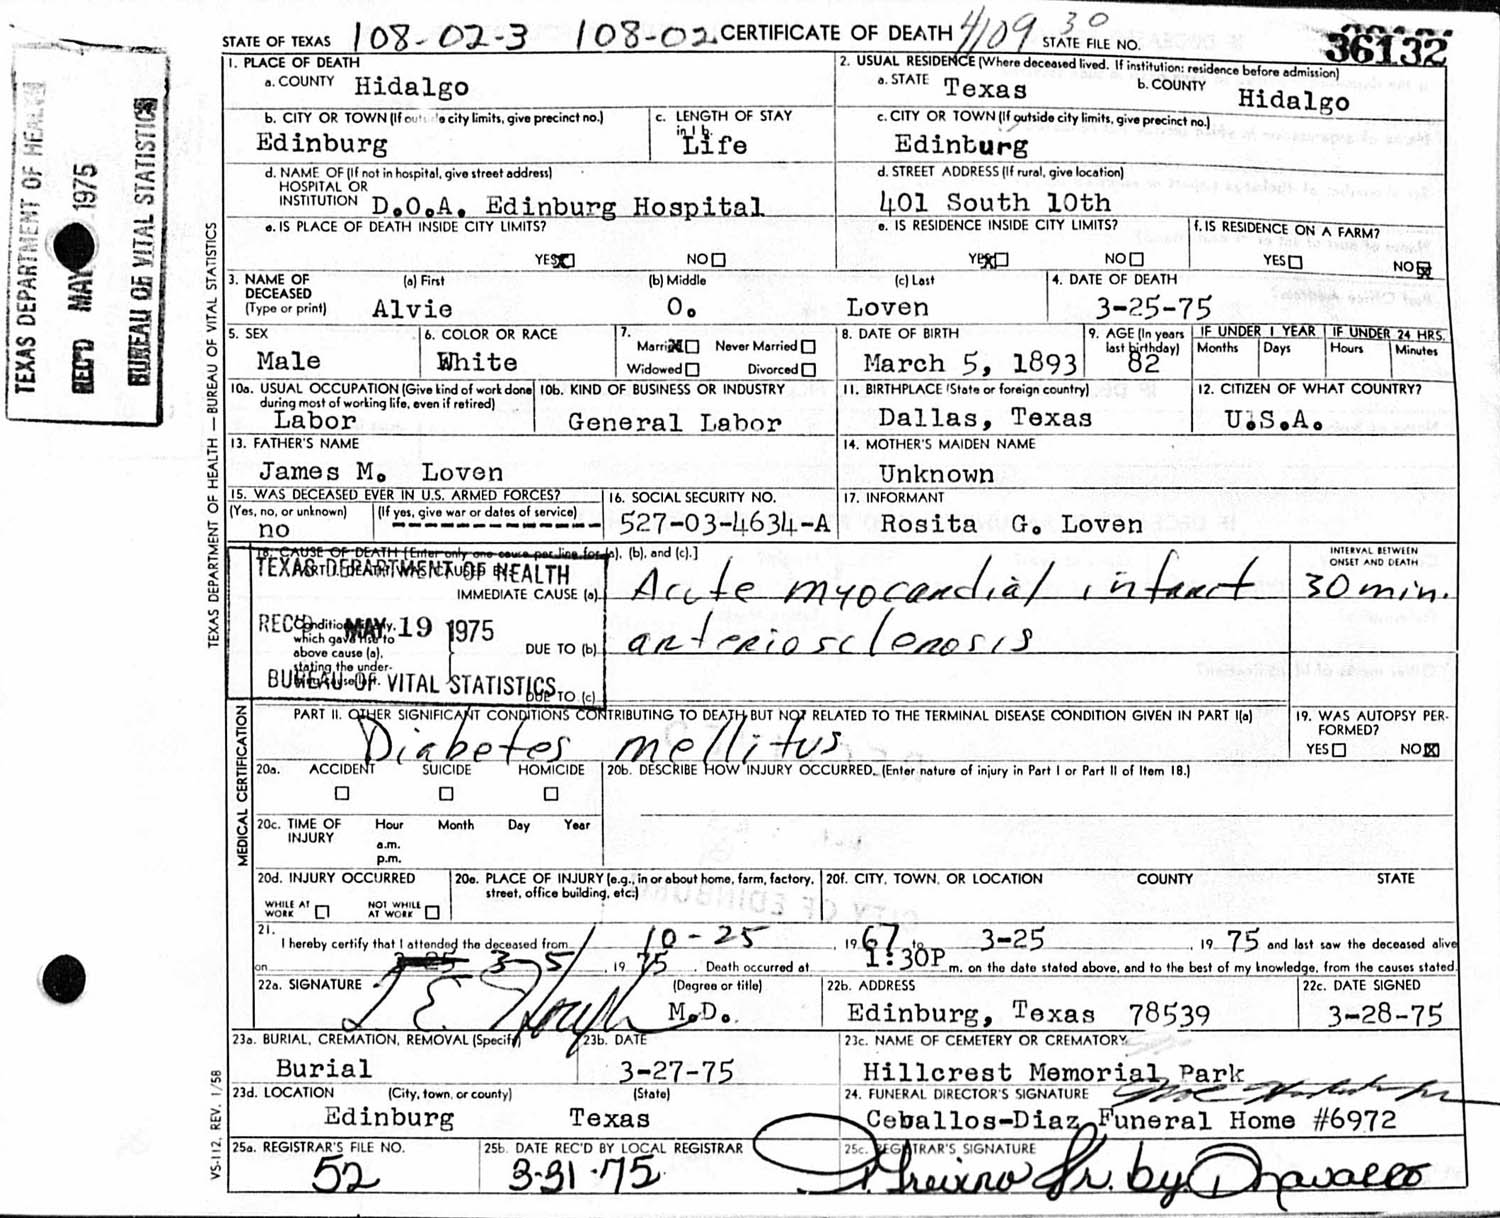 STATE OF TEXAS 108-02-3 108-02 CERTIFICATE OF DEATH 4109 30 STATE FILE NO. 36132
TEXAS DEPARTMENT OF HEALTH
REC'D MAY 1975
BUREAU OF VITAL STATISTICS
TEXAS DEPARTMENT OF HEALTH — BUREAU OF VITAL STATISTICS
1. PLACE OF DEATH
a. COUNTY Hidalgo
2. USUAL RESIDENCE (Where deceased lived. If institution: residence before admission)
a. STATE Texas b. COUNTY Hidalgo
b. CITY OR TOWN (If outside city limits, give precinct no.)
Edinburg
c. LENGTH OF STAY
in 1 b.
Life
c. CITY OR TOWN (If outside city limits, give precinct no.)
Edinburg
d. NAME OF (If not in hospital, give street address)
HOSPITAL OR
INSTITUTION D.O.A. Edinburg Hospital
d. STREET ADDRESS (If rural, give location)
401 South 10th
e. IS PLACE OF DEATH INSIDE CITY LIMITS?
YES NO
e. IS RESIDENCE INSIDE CITY LIMITS?
YES NO
f. IS RESIDENCE ON A FARM?
YES NO
3. NAME OF DECEASED (Type or print)
(a) First Alvie
(b) Middle O.
(c) Last Loven
4. DATE OF DEATH
3-25-75
5. SEX
Male
6. COLOR OR RACE
White
7.
Married Never Married
Widowed Divorced
8. DATE OF BIRTH
March 5, 1893
9. AGE (In years last birthday)
82
IF UNDER 1 YEAR
Months Days
IF UNDER 24 HRS.
Hours Minutes
10a. USUAL OCCUPATION (Give kind of work done
during most of working life, even if retired)
Labor
10b. KIND OF BUSINESS OR INDUSTRY
General Labor
11. BIRTHPLACE (State or foreign country)
Dallas, Texas
12. CITIZEN OF WHAT COUNTRY?
U.S.A.
13. FATHER'S NAME
James M. Loven
14. MOTHER'S MAIDEN NAME
Unknown
15. WAS DECEASED EVER IN U.S. ARMED FORCES?
(Yes, no, or unknown) (If yes, give war or dates of service)
no ---------------
16. SOCIAL SECURITY NO.
527-03-4634-A
17. INFORMANT
Rosita G. Loven
18. CAUSE OF DEATH [Enter only one cause per line for (a), (b), and (c).]
INTERVAL BETWEEN
ONSET AND DEATH
TEXAS DEPARTMENT OF HEALTH
REC'D MAY 19 1975
BUREAU OF VITAL STATISTICS
IMMEDIATE CAUSE (a) Acute myocardial infarct 30 min.
which gave rise to
above cause (a),
stating the under-
DUE TO (b) arteriosclerosis
DUE TO (c)
MEDICAL CERTIFICATION
PART II. OTHER SIGNIFICANT CONDITIONS CONTRIBUTING TO DEATH BUT NOT RELATED TO THE TERMINAL DISEASE CONDITION GIVEN IN PART I(a)
Diabetes mellitus
19. WAS AUTOPSY PER-
FORMED?
YES NO
20a. ACCIDENT SUICIDE HOMICIDE
20b. DESCRIBE HOW INJURY OCCURRED. (Enter nature of injury in Part I or Part II of Item 18.)
20c. TIME OF INJURY Hour Month Day Year
a.m.
p.m.
20d. INJURY OCCURRED
WHILE AT WORK NOT WHILE AT WORK
20e. PLACE OF INJURY (e.g., in or about home, farm, factory,
street, office building, etc.)
20f. CITY, TOWN, OR LOCATION COUNTY STATE
21.
I hereby certify that I attended the deceased from 10-25, 1967 to 3-25, 1975 and last saw the deceased alive
on 3-25 3-5, 1975. Death occurred at 1:30P m. on the date stated above, and to the best of my knowledge, from the causes stated.
22a. SIGNATURE (Degree or title)
M.D.
22b. ADDRESS
Edinburg, Texas 78539
22c. DATE SIGNED
3-28-75
23a. BURIAL, CREMATION, REMOVAL (Specify)
Burial
23b. DATE
3-27-75
23c. NAME OF CEMETERY OR CREMATORY
Hillcrest Memorial Park
23d. LOCATION (City, town, or county) (State)
Edinburg Texas
24. FUNERAL DIRECTOR'S SIGNATURE
Ceballos-Diaz Funeral Home #6972
25a. REGISTRAR'S FILE NO.
52
25b. DATE REC'D BY LOCAL REGISTRAR
3-31-75
25c. REGISTRAR'S SIGNATURE
Jr. by
VS-112, REV. 1/58